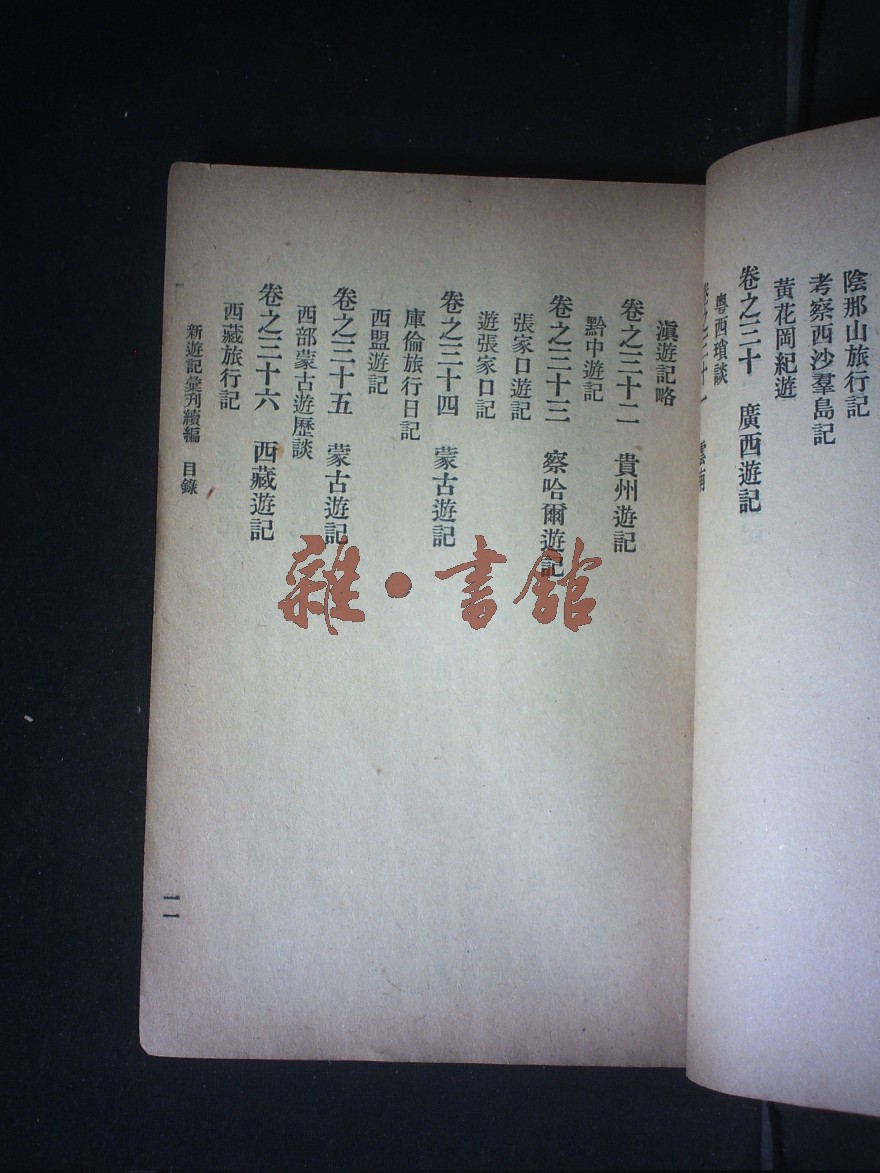 陰那山旅行記
考察西沙羣島記
黃花岡紀遊
卷之三十　廣西遊記
粵西瑣談
卷之三十一　雲南
滇遊記略
卷之三十二　貴州遊記
黔中遊記
卷之三十三　察哈爾遊記
張家口遊記
遊張家口記
卷之三十四　蒙古遊記
庫倫旅行日記
西盟遊記
卷之三十五　蒙古遊記
西部蒙古遊歷談
卷之三十六　西藏遊記
西藏旅行記
新遊記彙刊續編　目錄
一一
雜・書館